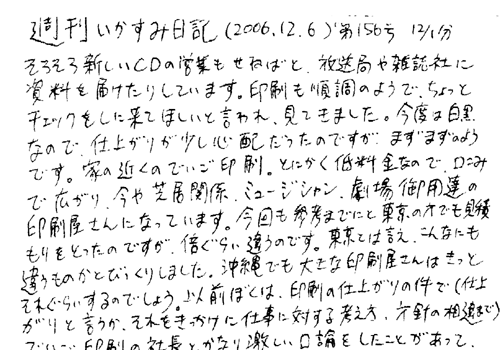 週刊いかすみ日記 (2006.12.6) 第156号 12/1分
そろそろ新しいCDの営業もせねばと、放送局や雑誌社に
資料を届けたりしています。印刷も順調のようで、ちょっと
チェックをしに来てほしいと言われ、見てきました。今度は白黒
なので、仕上がりが少し心配だったのですが、まずまずのよう
です。家の近くのでいご印刷。とにかく低料金なので、口こみ
で広がり、今や芝居関係、ミュージシャン、劇場御用達の
印刷屋さんになっています。今回も参考までにと東京の方でも見積
もりをとったのですが、倍ぐらい違うのです。東京とは言え、こんなにも
違うものかとびっくりしました。沖縄でも大きな印刷屋さんはきっと
それぐらいするのでしょう。以前ぼくは、印刷の仕上がりの件で(仕上
がりと言うか、それをきっかけに仕事に対する考え方、方針の相違まで)
でいご印刷の社長とかなり激しい口論をしたことがあって、